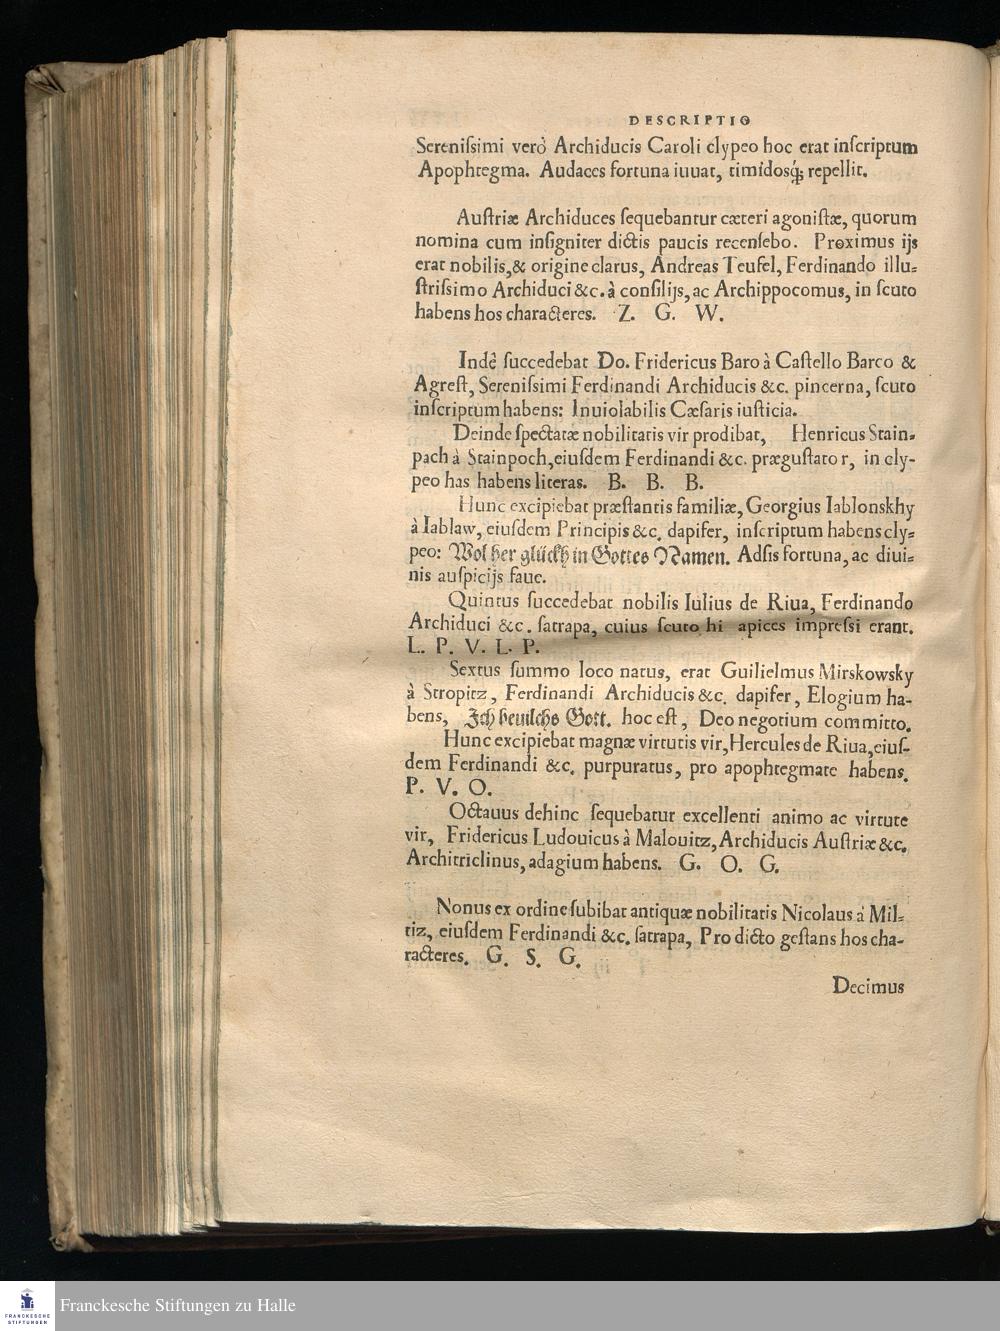 DESCRIPTIO
Sereniſsimi verò Archiducis Caroli clypeo hoc erat inſcriptum
Apophtegma. Audaces fortuna iuuat, timidosq́; repellit.
Auſtriæ Archiduces ſequebantur cæteri agoniſtæ, quorum
nomina cum inſigniter dictis paucis recenſebo. Proximus ijs
erat nobilis,& origine clarus, Andreas Teufel, Ferdinando illu-
ſtriſsimo Archiduci &c. à conſilijs, ac Archippocomus, in ſcuto
habens hos characteres. Z. G. W.
Indê ſuccedebat Do. Fridericus Baro à Caſtello Barco &
Agreſt, Sereniſsimi Ferdinandi Archiducis &c. pincerna, ſcuto
inſcriptum habens: Inuiolabilis Cæſaris iuſticia.
Deinde ſpectatæ nobilitatis vir prodibat, Henricus Stain-
pach à Stainpoch, eiuſdem Ferdinandi &c. præguſtator, in cly-
peo has habens literas. B. B. B.
Hunc excipiebat præſtantis familiæ, Georgius Iablonskhy
à Iablaw, eiuſdem Principis &c. dapifer, inſcriptum habens cly-
peo: Wol her glückh in Gottes Namen. Adſis fortuna, ac diui-
nis auſpicijs faue.
Quintus ſuccedebat nobilis Iulius de Riua, Ferdinando
Archiduci &c. ſatrapa, cuius ſcuto hi apices impreſsi erant.
L. P. V. L. P.
Sextus ſummo loco natus, erat Guilielmus Mirskowsky
à Stropitz, Ferdinandi Archiducis &c. dapifer, Elogium ha-
bens, Ich beuilchs Gott. hoc eſt, Deo negotium committo.
Hunc excipiebat magnæ virtutis vir, Hercules de Riua, eiuſ-
dem Ferdinandi &c. purpuratus, pro apophtegmate habens.
P. V. O.
Octauus dehinc ſequebatur excellenti animo ac virtute
vir, Fridericus Ludouicus à Malouitz, Archiducis Auſtriæ &c.
Architriclinus, adagium habens. G. O. G.
Nonus ex ordine ſubibat antiquæ nobilitatis Nicolaus à Mil-
tiz, eiuſdem Ferdinandi &c. ſatrapa, Pro dicto geſtans hos cha-
racteres. G. S. G.
Decimus
FRANCKESCHE
STIFTUNGEN
Franckesche Stiftungen zu Halle